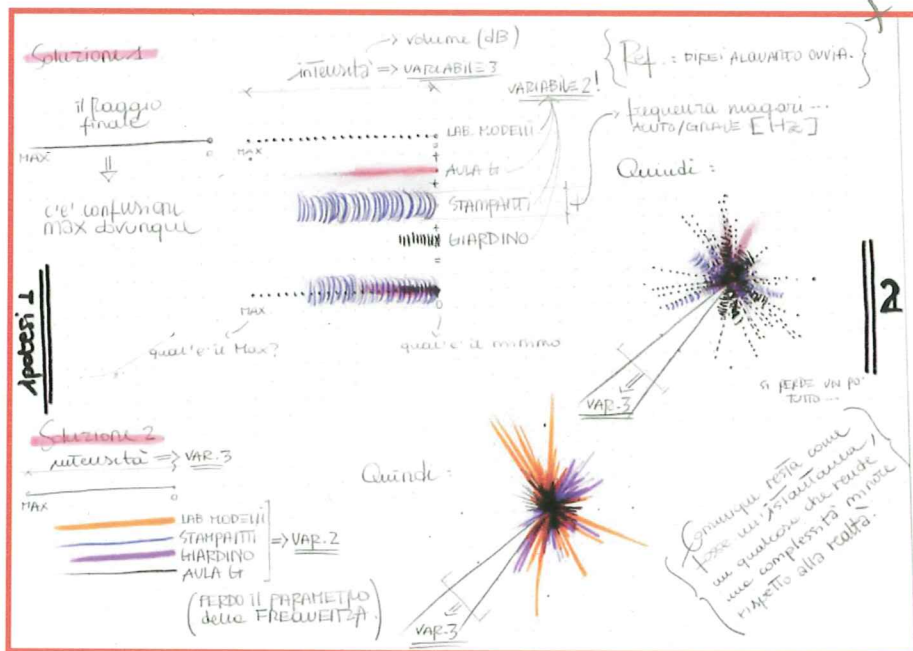 Soluzione 1
→ volume (dB)
intensità => VARIABILE 3
VARIABILE 2!
Ref. : DIREI ALQUANTO OVVIA.
frequenza magari...
ACUTO/GRAVE [Hz]
il Raggio
finale
MAX
0
c'è confusione
MAX dovunque
MAX
LAB. MODELLI
0
+
AULA G
+
STAMPANTI
+
GIARDINO
=
MAX
0
qual'è il Max?
qual'è il minimo
Quindi :
VAR.3
SI PERDE UN PO'
TUTTO...
ipotesi 1
2
Soluzione 2
intensità => VAR.3
MAX
0
LAB MODELLI
STAMPANTI
GIARDINO
AULA G
=> VAR.2
(PERDO IL PARAMETRO
della FREQUENZA)
Quindi :
VAR.3
Comunque resta come
fosse un'istantanea,
un qualcosa che rende
una complessità minore
rispetto alla realtà.